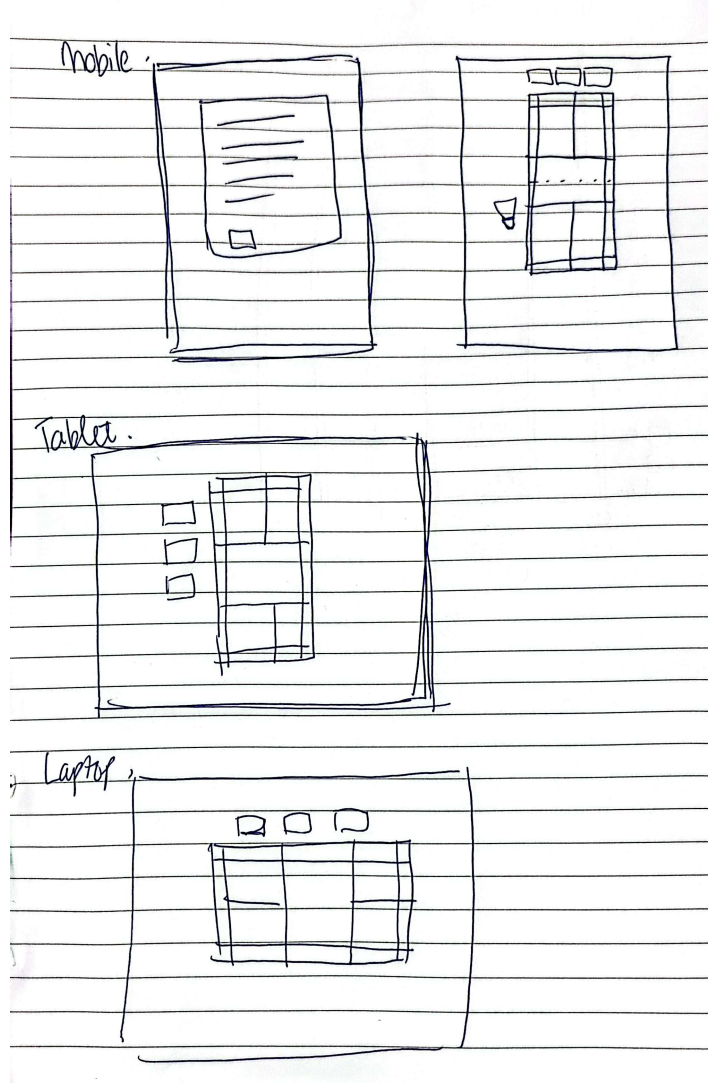 Mobile.
Tablet.
Laptop.